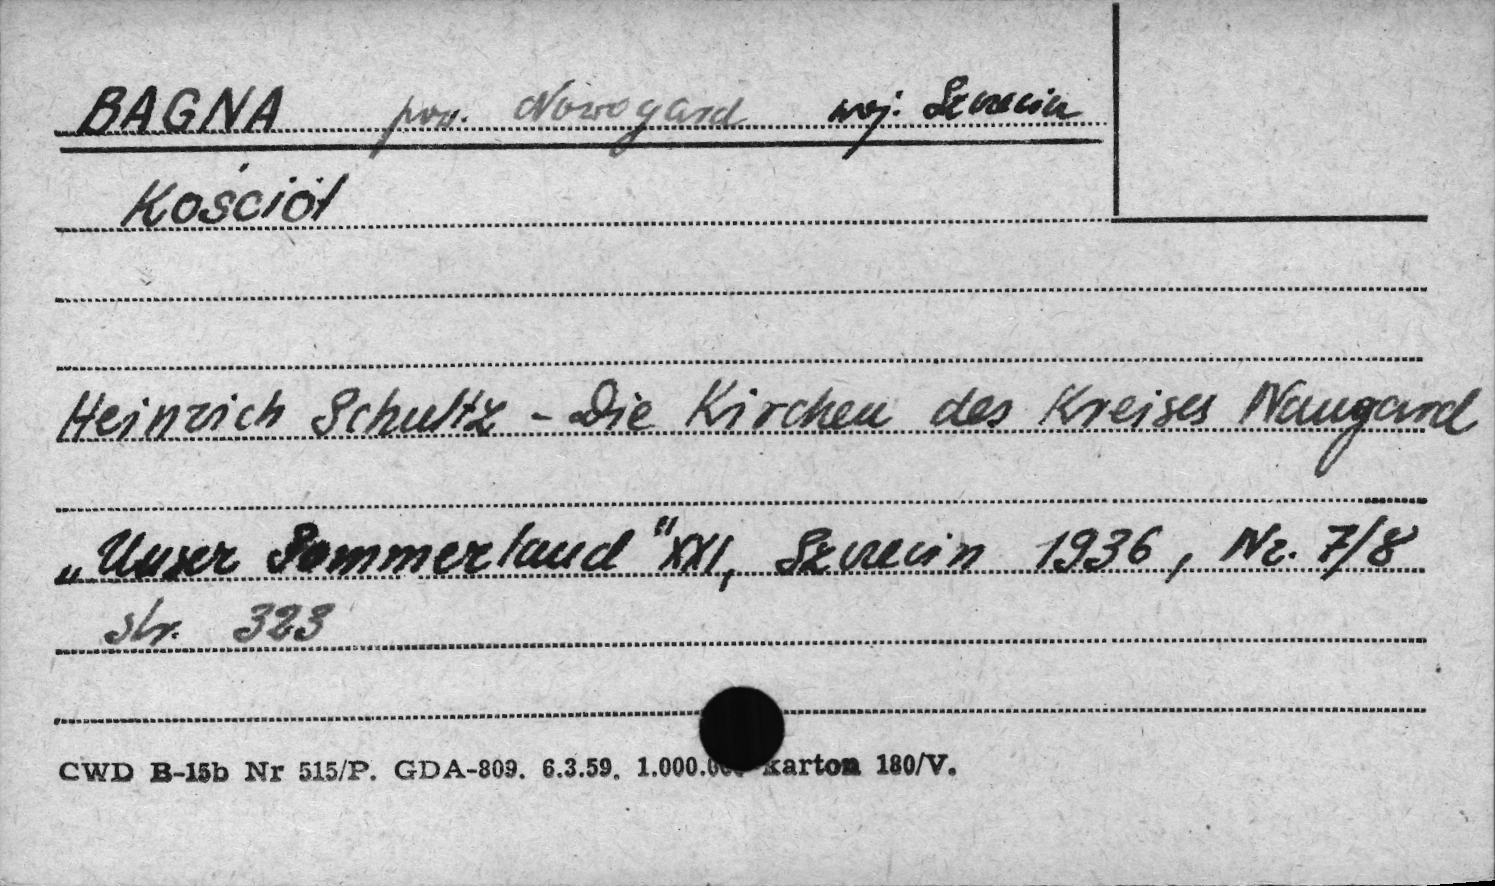 BAGNA pow. Nowogard woj. Szczecin
Kościół
Heinrich Schultz - Die Kirchen des Kreises Naugard
„Unser Pommerland" XXI, Szczecin 1936, Nr. 7/8
str. 323
CWD B-15b Nr 515/P. GDA-809. 6.3.59. 1.000.000 karton 180/V.